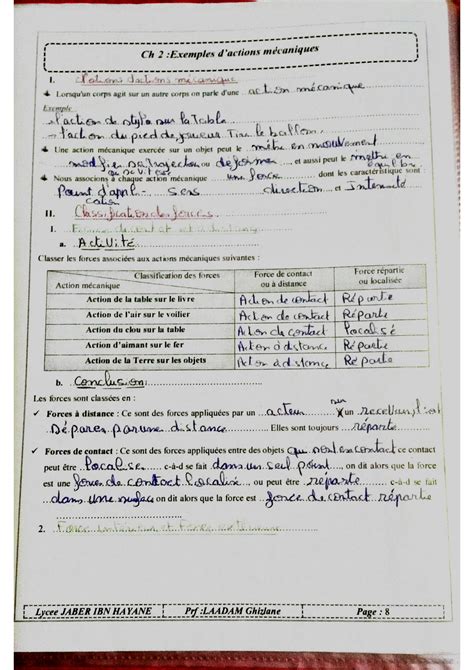 Ch 2 :Exemples d'actions mécaniques
I. Notions d'actions mécanique
Lorsqu'un corps agit sur un autre corps on parle d'une ... action mécanique
Exemple
- l'action de stylo sur la Table
- l'action du pied de joueur Tire le ballon
Une action mécanique exercée sur un objet peut le mettre en mouvement
modifier sa trajectoire ou deformer ..., et aussi peut le mettre en
Nous associons à chaque action mécanique ..une force.. dont les caractéristique sont :
Point d'appli- ... sens ... direction ... et Intensité
cation
II. Classification des forces
1.
a. Activité
Classer les forces associées aux actions mécaniques suivantes :
Classification des forces
Action mécanique
Force de contact ou à distance
Force répartie ou localisée
Action de la table sur le livre Action de contact Répartie
Action de l'air sur le voilier Action de contact Réparte
Action du clou sur la table Action de contact localisé
Action d'aimant sur le fer Action à distance Réparte
Action de la Terre sur les objets Action à distance Réparte
b. Conclusion
Les forces sont classées en :
✓ Forces à distance : Ce sont des forces appliquées par un ...acteur... sur un receveur,
par une distance ... Elles sont toujours ...réparte...
✓ Forces de contact : Ce sont des forces appliquées entre des objets qui sont en contact ce contact
peut être ...localise... c-à-d se fait dans un seul point..., on dit alors que la force
est une force de contact localisée .., ou peut être ...réparte... c-à-d se fait
...dans une surface on dit alors que la force est ...force de contact réparte
2. Force intérieur et Force extérieure
Lycee JABER IBN HAYANE Prf :LAADAM Ghizlane Page : 8